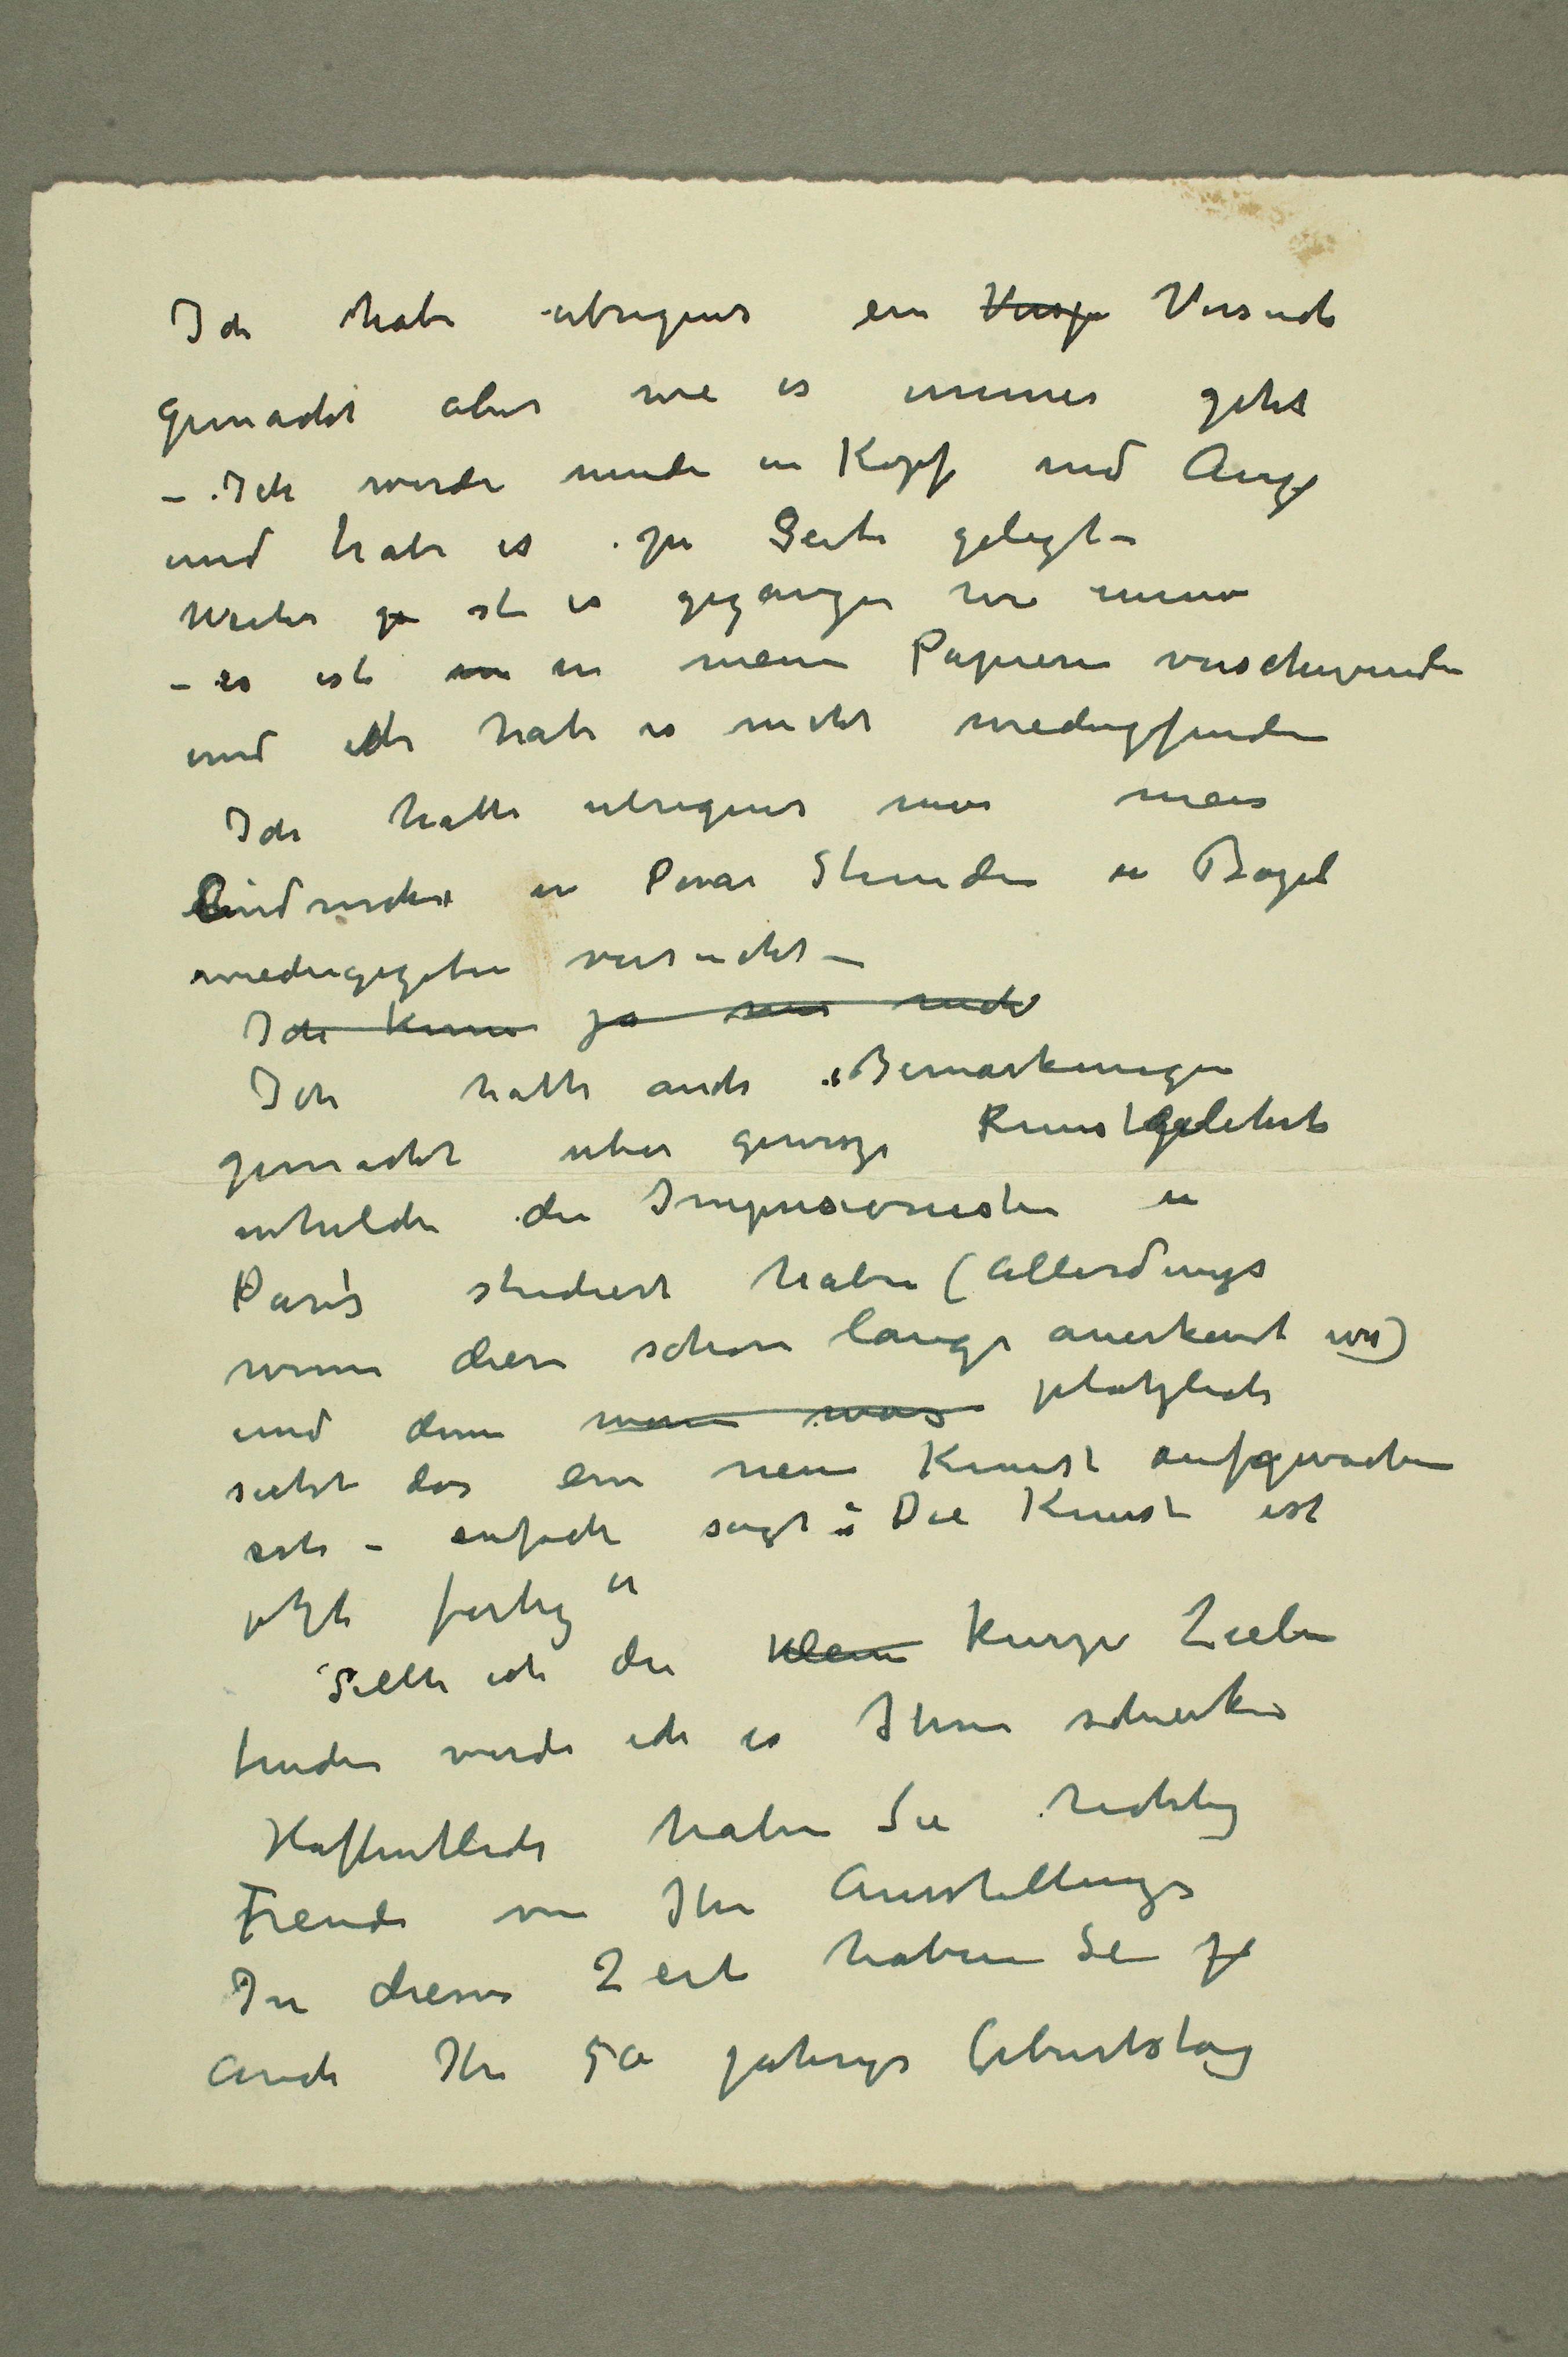 Ich habe übrigens ein Versu Versuch
gemacht aber wie es immer geht
– Ich werde müde in Kopf und Auge
und habe es zu Seite gelegt –
Weiter ist es gegangen wie immer
– es ist in meine Papieren verschwunden
und ich habe es nicht wiedergefunden
Ich hatte übrigens nur mein
Eindrucke in Paar Stunden in Basel
wiedergegeben versucht –
Ich kenne ja nur nicht
Ich hatte auch Bemarkungen
gemacht uber gewisze Kunstgelehrte
welche die Impresionisten in
Paris studiert haben (allerdings
wenn diese schon lange anerkent war)
und denn wenn was plotzlich
sieht das eine neue Kunst aufgewachen
ist – einfach sagt: "Die Kunst ist
jetzt fertig"
Sollte ich die kleine kurze Zeilen
finden werde ich es Ihnen schicken
Hoffentlich haben Sie richtig
Freude von Ihre Ausstellung
In dieser Zeit haben Sie ja
auch Ihr 50 jahrige Geburtstag